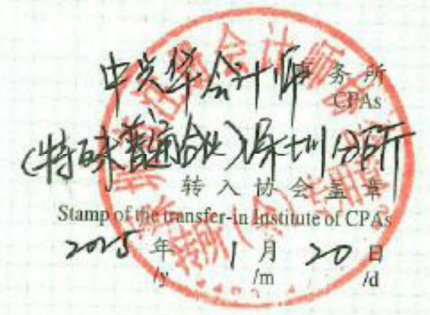 中兴华会计师 事务所
CPAs
(特殊普通合伙)深圳分所
转入协会盖章
Stamp of the transfer-in Institute of CPAs
2025 年 1 月 20 日
/y /m /d